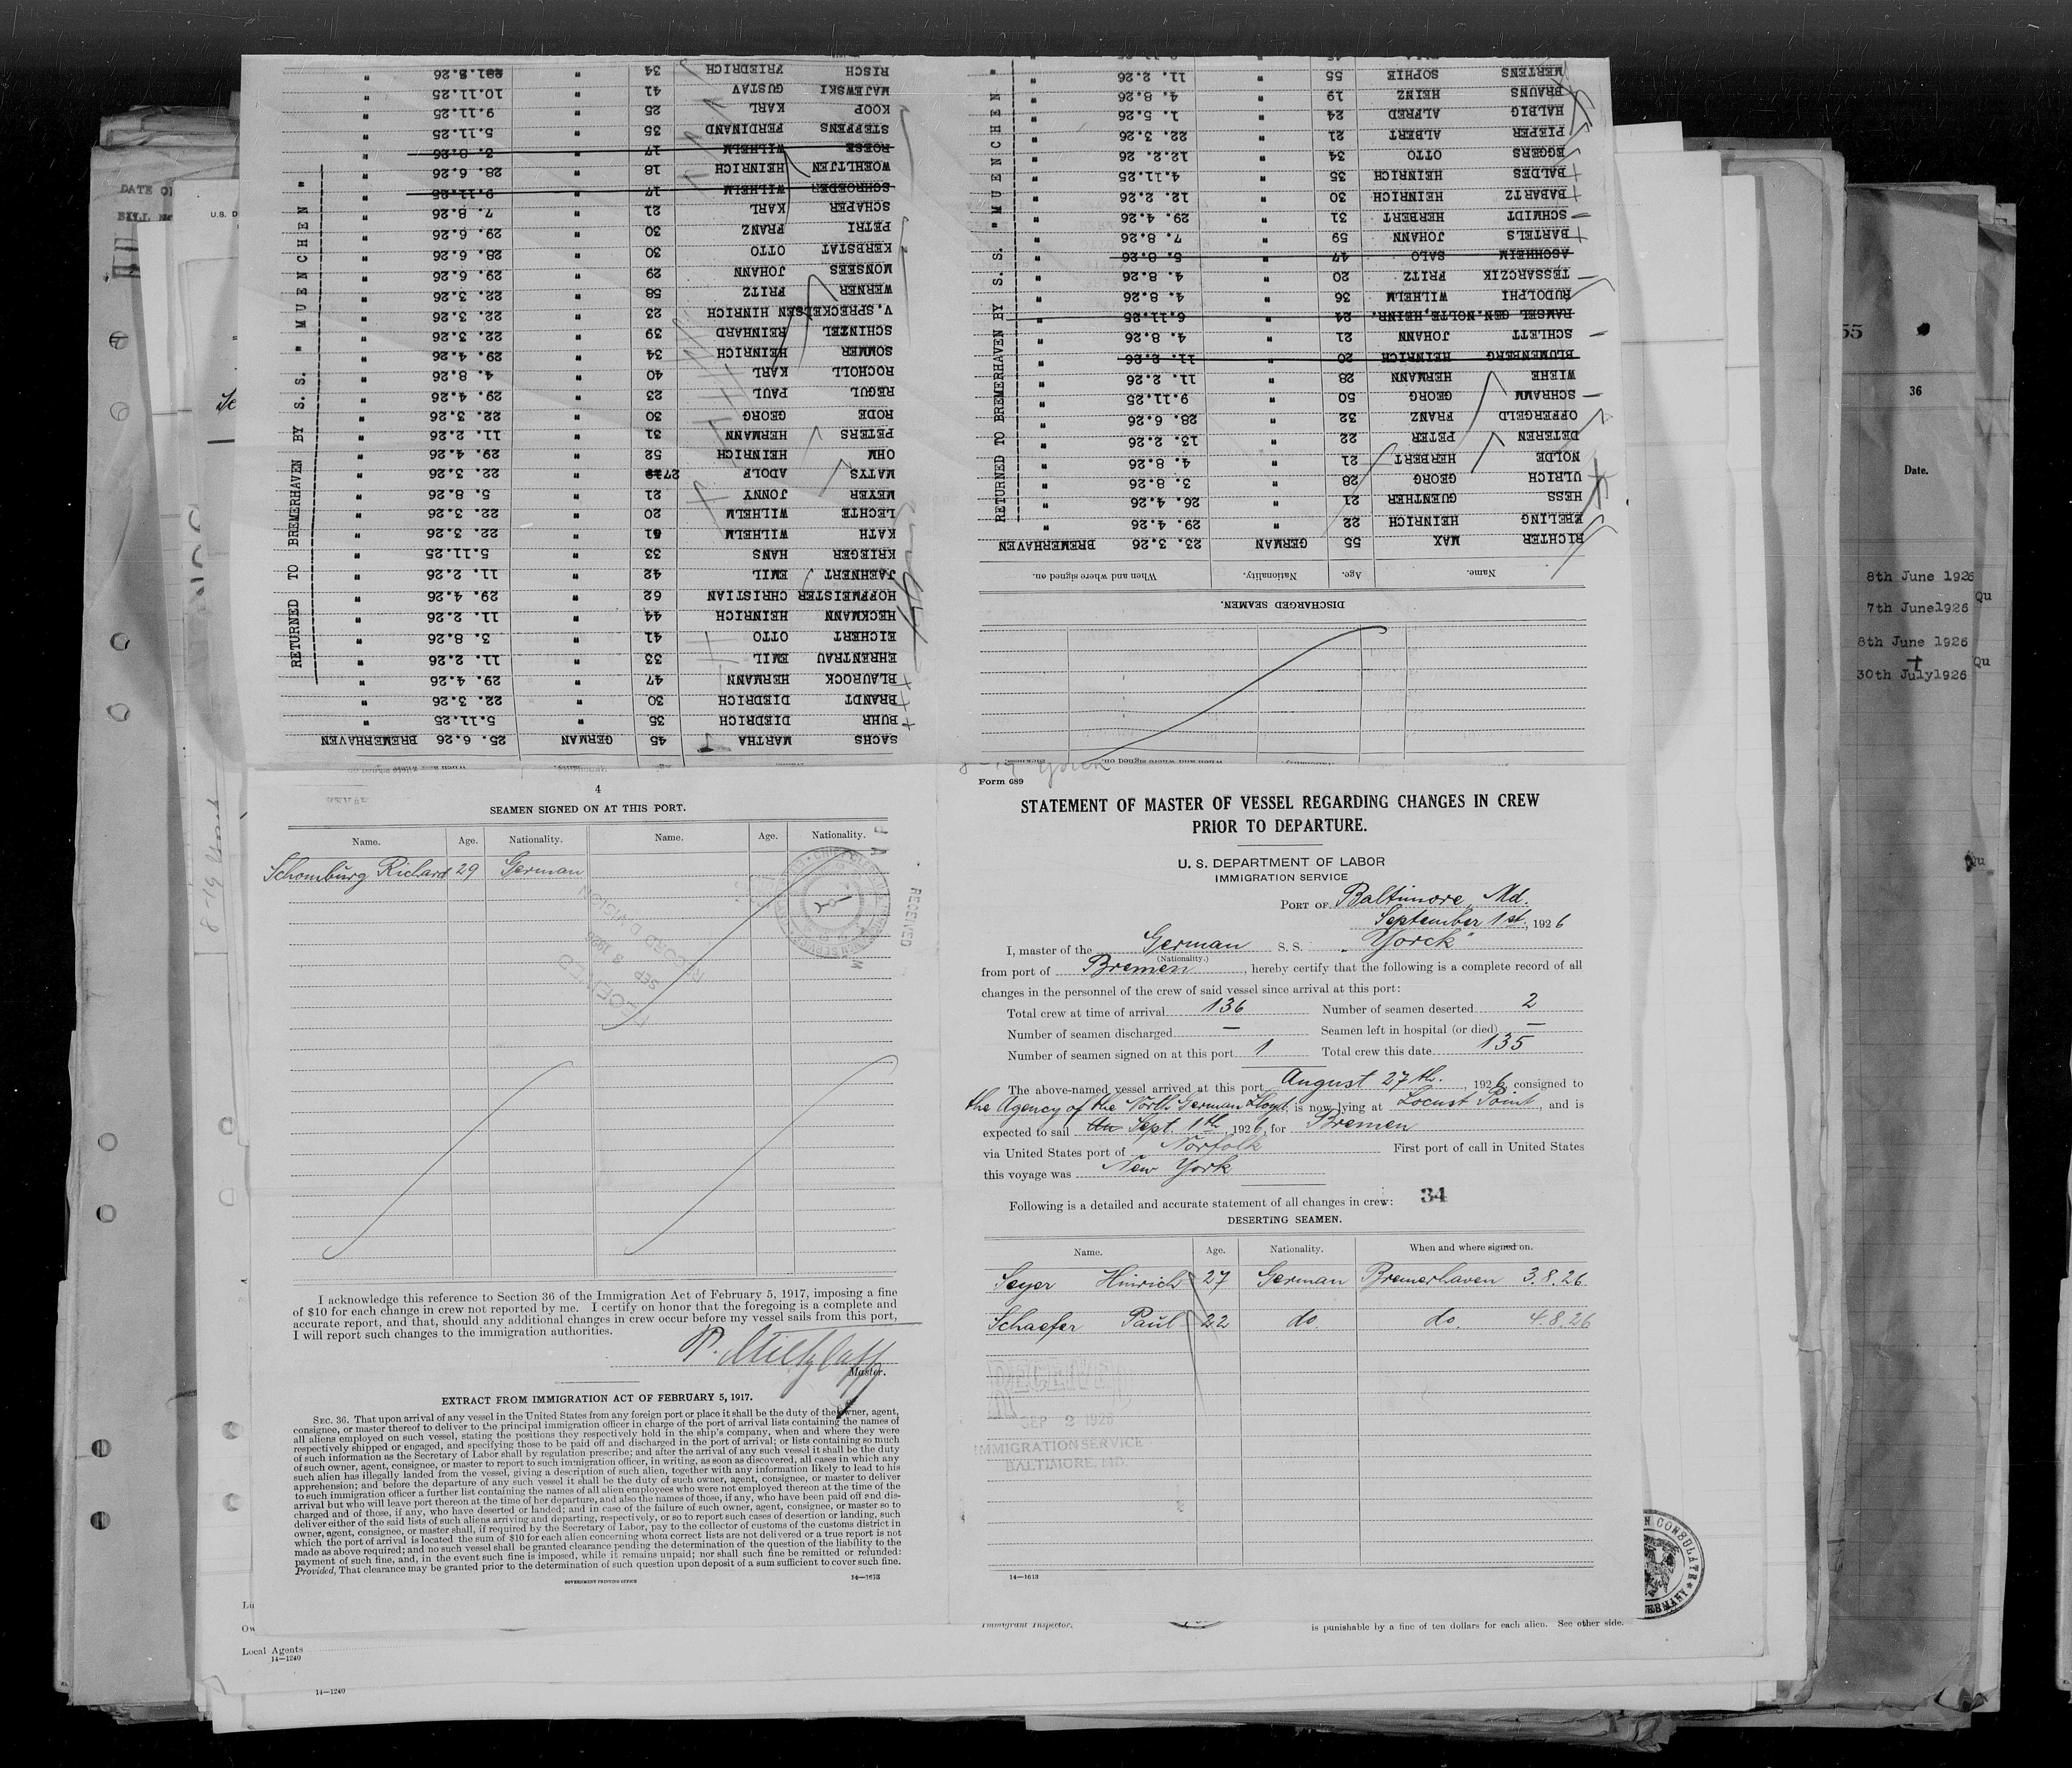 Form 689
STATEMENT OF MASTER OF VESSEL REGARDING CHANGES IN CREW
PRIOR TO DEPARTURE.
U. S. DEPARTMENT OF LABOR
IMMIGRATION SERVICE
PORT OF Baltimore, Md.
September 1st, 1926
I, master of the German S. S. "Yorck"
(Nationality.)
from port of Bremen, hereby certify that the following is a complete record of all
changes in the personnel of the crew of said vessel since arrival at this port:
Total crew at time of arrival 136 Number of seamen deserted 2
Number of seamen discharged — Seamen left in hospital (or died) —
Number of seamen signed on at this port 1 Total crew this date 135
The above-named vessel arrived at this port August 27th., 1926, consigned to
the Agency of the North German Lloyd, is now lying at Locust Point, and is
expected to sail Sept. 1th, 1926, for Bremen
via United States port of Norfolk First port of call in United States
this voyage was New York
Following is a detailed and accurate statement of all changes in crew: 34
DESERTING SEAMEN.
Name. Age. Nationality. When and where signed on.
Seyer Hinrich 27 German Bremerhaven 3.8.26
Schaefer Paul 22 do. do. 4.8.26
RECEIVED
SEP 2 1926
IMMIGRATION SERVICE
BALTIMORE, MD.
14—1613
4
SEAMEN SIGNED ON AT THIS PORT.
Name. Age. Nationality. Name. Age. Nationality.
Schomburg Richard 29 German
RECEIVED
SEP 3 1926
RECORD DIVISION
RECEIVED
I acknowledge this reference to Section 36 of the Immigration Act of February 5, 1917, imposing a fine
of $10 for each change in crew not reported by me. I certify on honor that the foregoing is a complete and
accurate report, and that, should any additional changes in crew occur before my vessel sails from this port,
I will report such changes to the immigration authorities.
Master.
EXTRACT FROM IMMIGRATION ACT OF FEBRUARY 5, 1917.
SEC. 36. That upon arrival of any vessel in the United States from any foreign port or place it shall be the duty of the owner, agent,
consignee, or master thereof to deliver to the principal immigration officer in charge of the port of arrival lists containing the names of
all aliens employed on such vessel, stating the positions they respectively hold in the ship's company, when and where they were
respectively shipped or engaged, and specifying those to be paid off and discharged in the port of arrival; or lists containing so much
of such information as the Secretary of Labor shall by regulation prescribe; and after the arrival of any such vessel it shall be the duty
of such owner, agent, consignee, or master to report to such immigration officer, in writing, as soon as discovered, all cases in which any
such alien has illegally landed from the vessel, giving a description of such alien, together with any information likely to lead to his
apprehension; and before the departure of any such vessel it shall be the duty of such owner, agent, consignee, or master to deliver
to such immigration officer a further list containing the names of all alien employees who were not employed thereon at the time of the
arrival but who will leave port thereon at the time of her departure, and also the names of those, if any, who have been paid off and dis-
charged and of those, if any, who have deserted or landed; and in case of the failure of such owner, agent, consignee, or master so to
deliver either of the said lists of such aliens arriving and departing, respectively, or so to report such cases of desertion or landing, such
owner, agent, consignee, or master shall, if required by the Secretary of Labor, pay to the collector of customs of the customs district in
which the port of arrival is located the sum of $10 for each alien concerning whom correct lists are not delivered or a true report is not
made as above required; and no such vessel shall be granted clearance pending the determination of the question of the liability to the
payment of such fine, and, in the event such fine is imposed, while it remains unpaid; nor shall such fine be remitted or refunded:
Provided, That clearance may be granted prior to the determination of such question upon deposit of a sum sufficient to cover such fine.
GOVERNMENT PRINTING OFFICE 14—1613
DISCHARGED SEAMEN.
Name. Age. Nationality. When and where signed on.
RICHTER MAX 55 GERMAN 23. 3.26 BREMERHAVEN
EBELING HEINRICH 22 " 29. 4.26 "
HESS GUENTHER 21 " 26. 4.26 "
ULRICH GEORG 28 " 3. 8.26 "
NOLDE HERBERT 21 " 4. 8.26 "
DETEREN PETER 22 " 13. 2.26 "
OFFERGELD FRANZ 32 " 28. 6.26 "
SCHRAMM GEORG 50 " 9.11.25 "
WIEHE HERMANN 28 " 11. 2.26 "
BLUMENBERG HEINRICH 20 " 11. 2.26 "
SCHLETT JOHANN 21 " 4. 8.26 "
RAMSEL GEN.NOLTE,HEINR. 24 " 6.11.25 "
RUDOLPHI WILHELM 36 " 4. 8.26 "
TESSARCZIK FRITZ 20 " 4. 8.26 "
ASCHHEIM SALO 47 " 5. 8.26 "
BARTELS JOHANN 59 " 7. 8.26 "
SCHMIDT HERBERT 31 " 29. 4.26 "
BABARTZ HEINRICH 30 " 12. 2.26 "
BALDES HEINRICH 35 " 4.11.25 "
EGGERS OTTO 34 " 12.2. 26 "
PIEPER ALBERT 21 " 22. 3.26 "
HALBIG ALFRED 24 " 1. 5.26 "
BRAUNS HEINZ 19 " 4. 8.26 "
MERTENS SOPHIE 55 " 11. 2.26 "
RETURNED TO BREMERHAVEN BY S. S. "MUENCHEN"
SACHS MARTHA 45 GERMAN 25. 6.26 BREMERHAVEN
BUHR DIEDRICH 35 " 5.11.25 "
BRANDT DIEDRICH 30 " 22. 3.26 "
BLAUROCK HERMANN 47 " 29. 4.26 "
EHRENTRAU EMIL 33 " 11. 2.26 "
EICHERT OTTO 41 " 3. 8.26 "
HECKMANN HEINRICH 44 " 11. 2.26 "
HOFFMEISTER CHRISTIAN 62 " 29. 4.26 "
JAEHNERT EMIL 42 " 11. 2.26 "
KRIEGER HANS 33 " 5.11.25 "
KATH WILHELM 61 " 22. 3.26 "
LECHTE WILHELM 20 " 22. 3.26 "
MEYER JONNY 21 " 5. 8.26 "
MATYS ADOLF 27 " 22. 3.26 "
OHM HEINRICH 52 " 29. 4.26 "
PETERS HERMANN 31 " 11. 2.26 "
RODE GEORG 30 " 22. 3.26 "
REGUL PAUL 23 " 29. 4.26 "
ROCHOLL KARL 40 " 4. 8.26 "
SOMMER HEINRICH 34 " 29. 4.26 "
SCHINZEL REINHARD 39 " 22. 3.26 "
V.SPRECKELSEN HINRICH 23 " 22. 3.26 "
WERNER FRITZ 58 " 22. 3.26 "
MONSEES JOHANN 29 " 29. 6.26 "
KERBSTAT OTTO 30 " 28. 6.26 "
PETRI FRANZ 30 " 29. 6.26 "
SCHAPER KARL 21 " 7. 8.26 "
SCHROEDER WILHELM 17 " 9.11.25 "
WOEHLTJEN HEINRICH 18 " 28. 6.26 "
ROESE WILHELM 17 " 3. 8.26 "
STEFFENS FERDINAND 35 " 5.11.25 "
KOOP KARL 25 " 9.11.25 "
MAJEWSKI GUSTAV 41 " 10.11.25 "
RISCH FRIEDRICH 34 "
RETURNED TO BREMERHAVEN BY S. S. "MUENCHEN"
DATE OF
U.S. D
55
36
Date.
8th June 1926
7th June1926
8th June 1926
30th July1926
Qu
Qu
Qu
Local Agents
14—1240
14—1240
Immigrant Inspector.
is punishable by a fine of ten dollars for each alien. See other side.